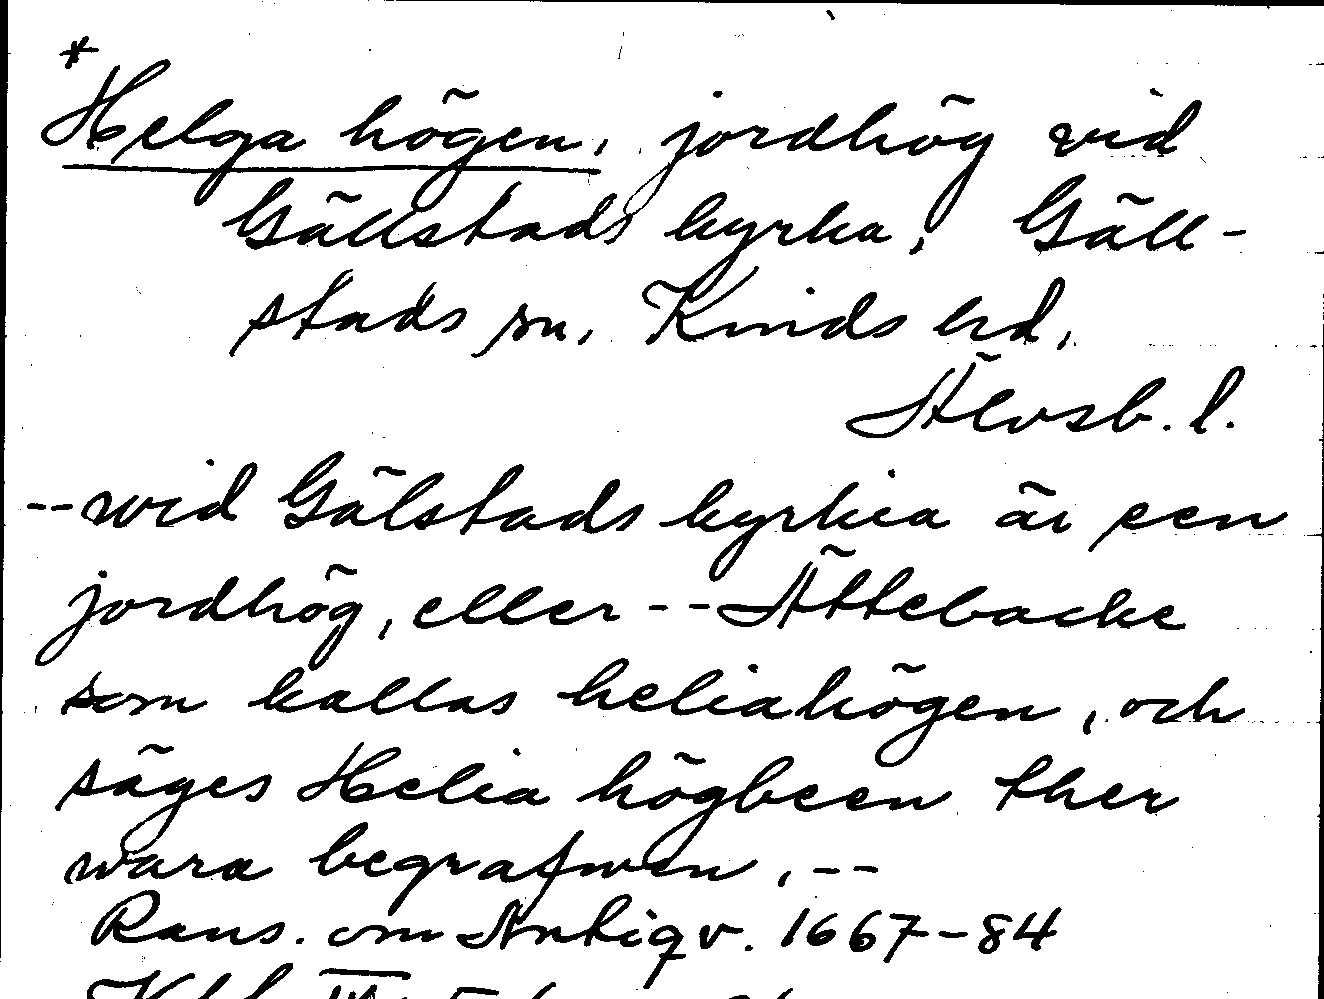 *
Helga högen, jordhög vid
Gällstads kyrka, Gäll-
stads sn, Kinds hd,
Älvsb. l.
--wid Gälstads kyrkia är een
jordhög, eller -- Ättebacke
som kallas heliahögen, och
säges Helia högbeen ther
wara begrafwen, --
Rans. om Antiqv. 1667-84